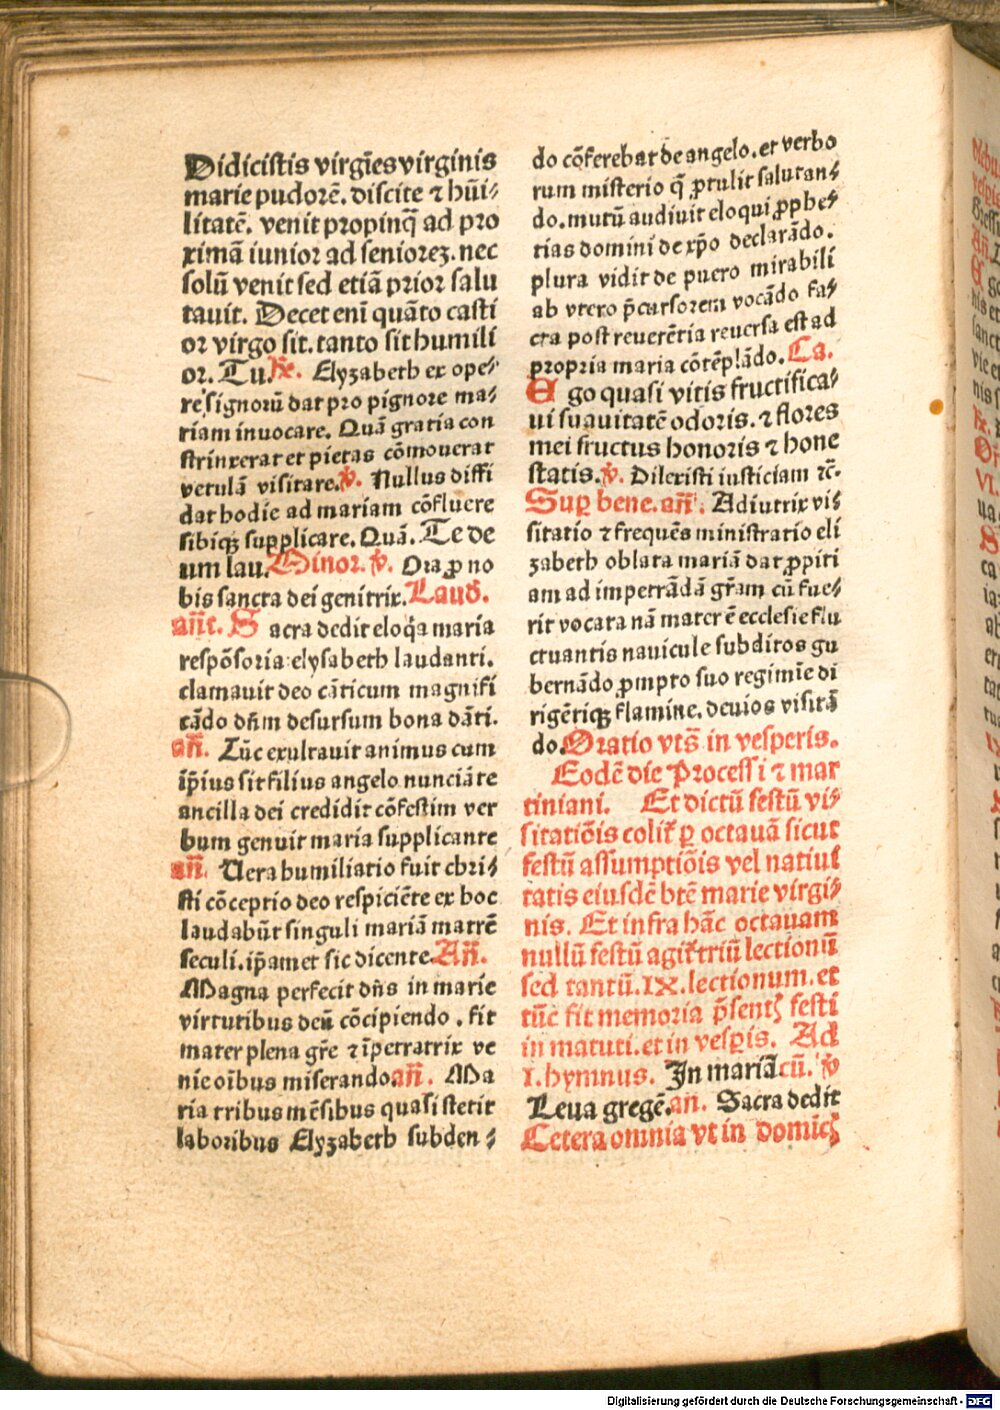 Didicistis virgīes virginis
marie pudorē. discite ⁊ hūi⸗
litatē. venit propinq̄ ad pro
ximā iunior ad seniorez. nec
solū venit sed etiā prior salu
tauit. Decet eni quāto casti
or virgo sit. tanto sit humili
or. Tu. R̃. Elyzabeth ex ope⸗
re signorū dat pro pignore ma⸗
riam inuocare. Quā gratia con
strinxerat et pietas cōmouerat
vetulā visitare. v̄. Nullus diffi
dat hodie ad mariam cōfluere
sibiqꝫ supplicare. Quā. Te de
um lau. Minor. v̄. Ora ꝓ no
bis sancta dei genitrix. Laud.
añe. S acra dedit eloq̄a maria
respōsoria elysabeth laudanti.
clamauit deo cāticum magnifi
cādo dñm desursum bona dāti.
añ. Tūc exultauit animus cum
īp̄ius sit filius angelo nunciāte
ancilla dei credidit cōfestim ver
bum genuit maria supplicante
añ. Uera humiliatio fuit chri⸗
sti cōceptio deo respiciēte ex hoc
laudabūt singuli mariā matrē
seculi. ip̄amet sic dicente. Añ.
Magna perfecit dñs in marie
virtutibus deū cōcipiendo. fit
mater plena gr̄e ⁊ īpetratrix ve
nie oībus miserando añ. Ma
ria tribus mēsibus quasi stetit
laboribus Elyzabeth subden⸗
do cōferebat de angelo. et verbo
rum misterio q̄ ꝓtulit salutan⸗
do. mutū audiuit eloqui ꝓphe⸗
tias domini de xp̄o declarādo.
plura vidit de puero mirabili
ab vtero p̄cursorem vocādo fa⸗
cta post reuerētia reuersa est ad
propria maria cōtēplādo. Ca.
E go quasi vitis fructifica⸗
ui suauitatē odoris. ⁊ flores
mei fructus honoris ⁊ hone
statis. v̄. Dilexisti iusticiam ⁊c̄.
Suꝑ bene. añ. Adiutrix vi⸗
sitatio ⁊ frequēs ministratio eli
zabeth oblata mariā dat ꝓpiti
am ad impetrādā gr̄am cū fue⸗
rit vocata nā mater ē ecclesie flu
ctuantis nauicule subditos gu
bernādo ꝓmpto suo regimīe di
rigētiqꝫ flamine. deuios visitā
do. Oratio vts̄ in vesperis.
Eodē die Processi ⁊ mar
tiniani. Et dictū festū vi⸗
sitatiōis colit̄ ꝑ octauā sicut
festū assumptiōis vel natiui
tatis eiusdē btē marie virgi⸗
nis. Et infra hāc octauam
nullū festū agit̄ triū lectionū
sed tantū. IX. lectionum. et
tūc fit memoria p̄sentꝭ festi
in matuti. et in vesꝑis. Ad
I. hymnus. In mariā cū. v̄
Leua gregē. añ. Sacra dedit
Cetera omnia vt in domicꝭ
Digitalisierung gefördert durch die Deutsche Forschungsgemeinschaft - DFG